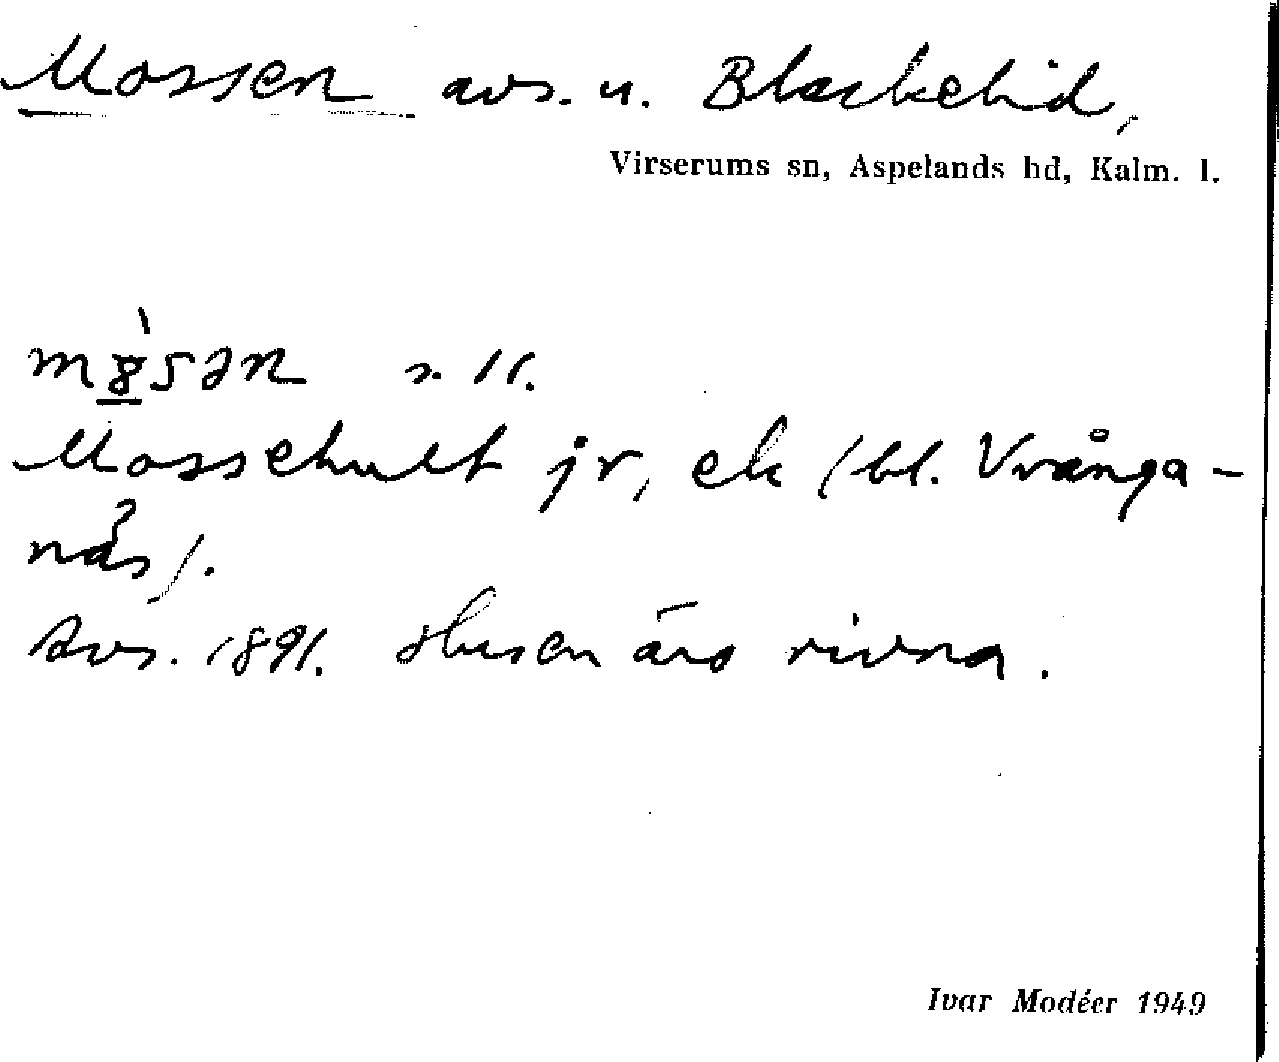 Mossen avs. u. Blackelid,
Virserums sn, Aspelands hd, Kalm. l.
s. 11.
Mossehult jr, ek (bl. Vrånga-
näs).
Avs. 1891. Husen äro rivna.
Ivar Modéer 1949